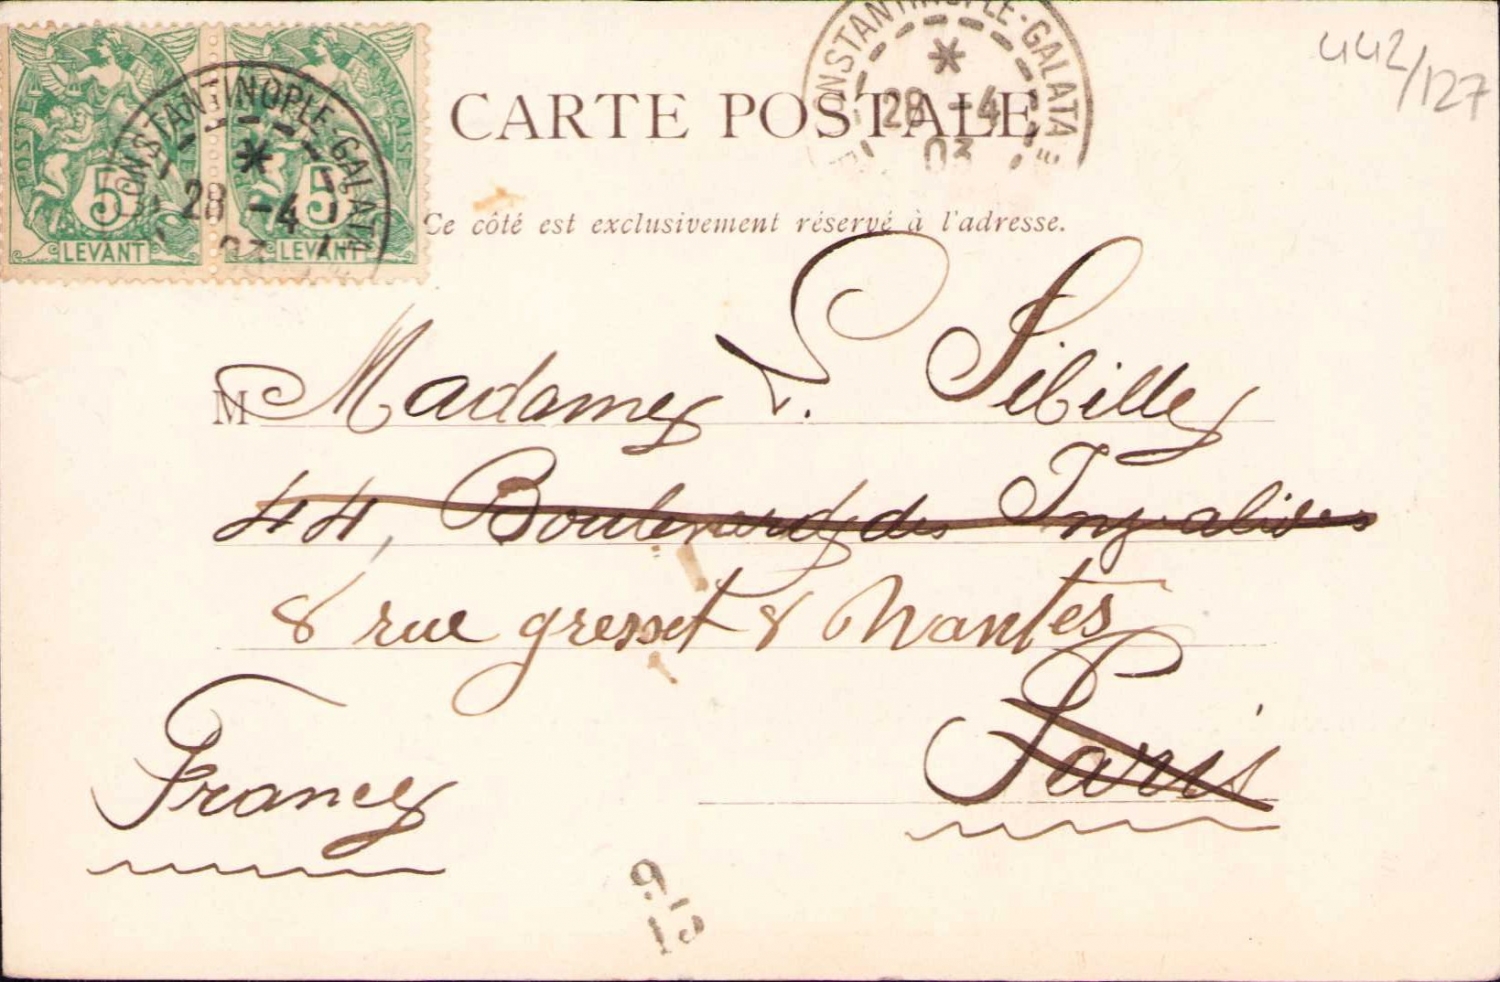 442/127
CARTE POSTALE
CONSTANTINOPLE-GALATA
28 -4
03
POSTES
FRANÇAISE
5
LEVANT
5
LEVANT
CONSTANTINOPLE-GALATA
28 -4
03
Ce côté est exclusivement réservé à l'adresse.
M Madame L. Sibille
44, Boulevard des Invalides
8 rue gresset 8 Nantes
Paris
France